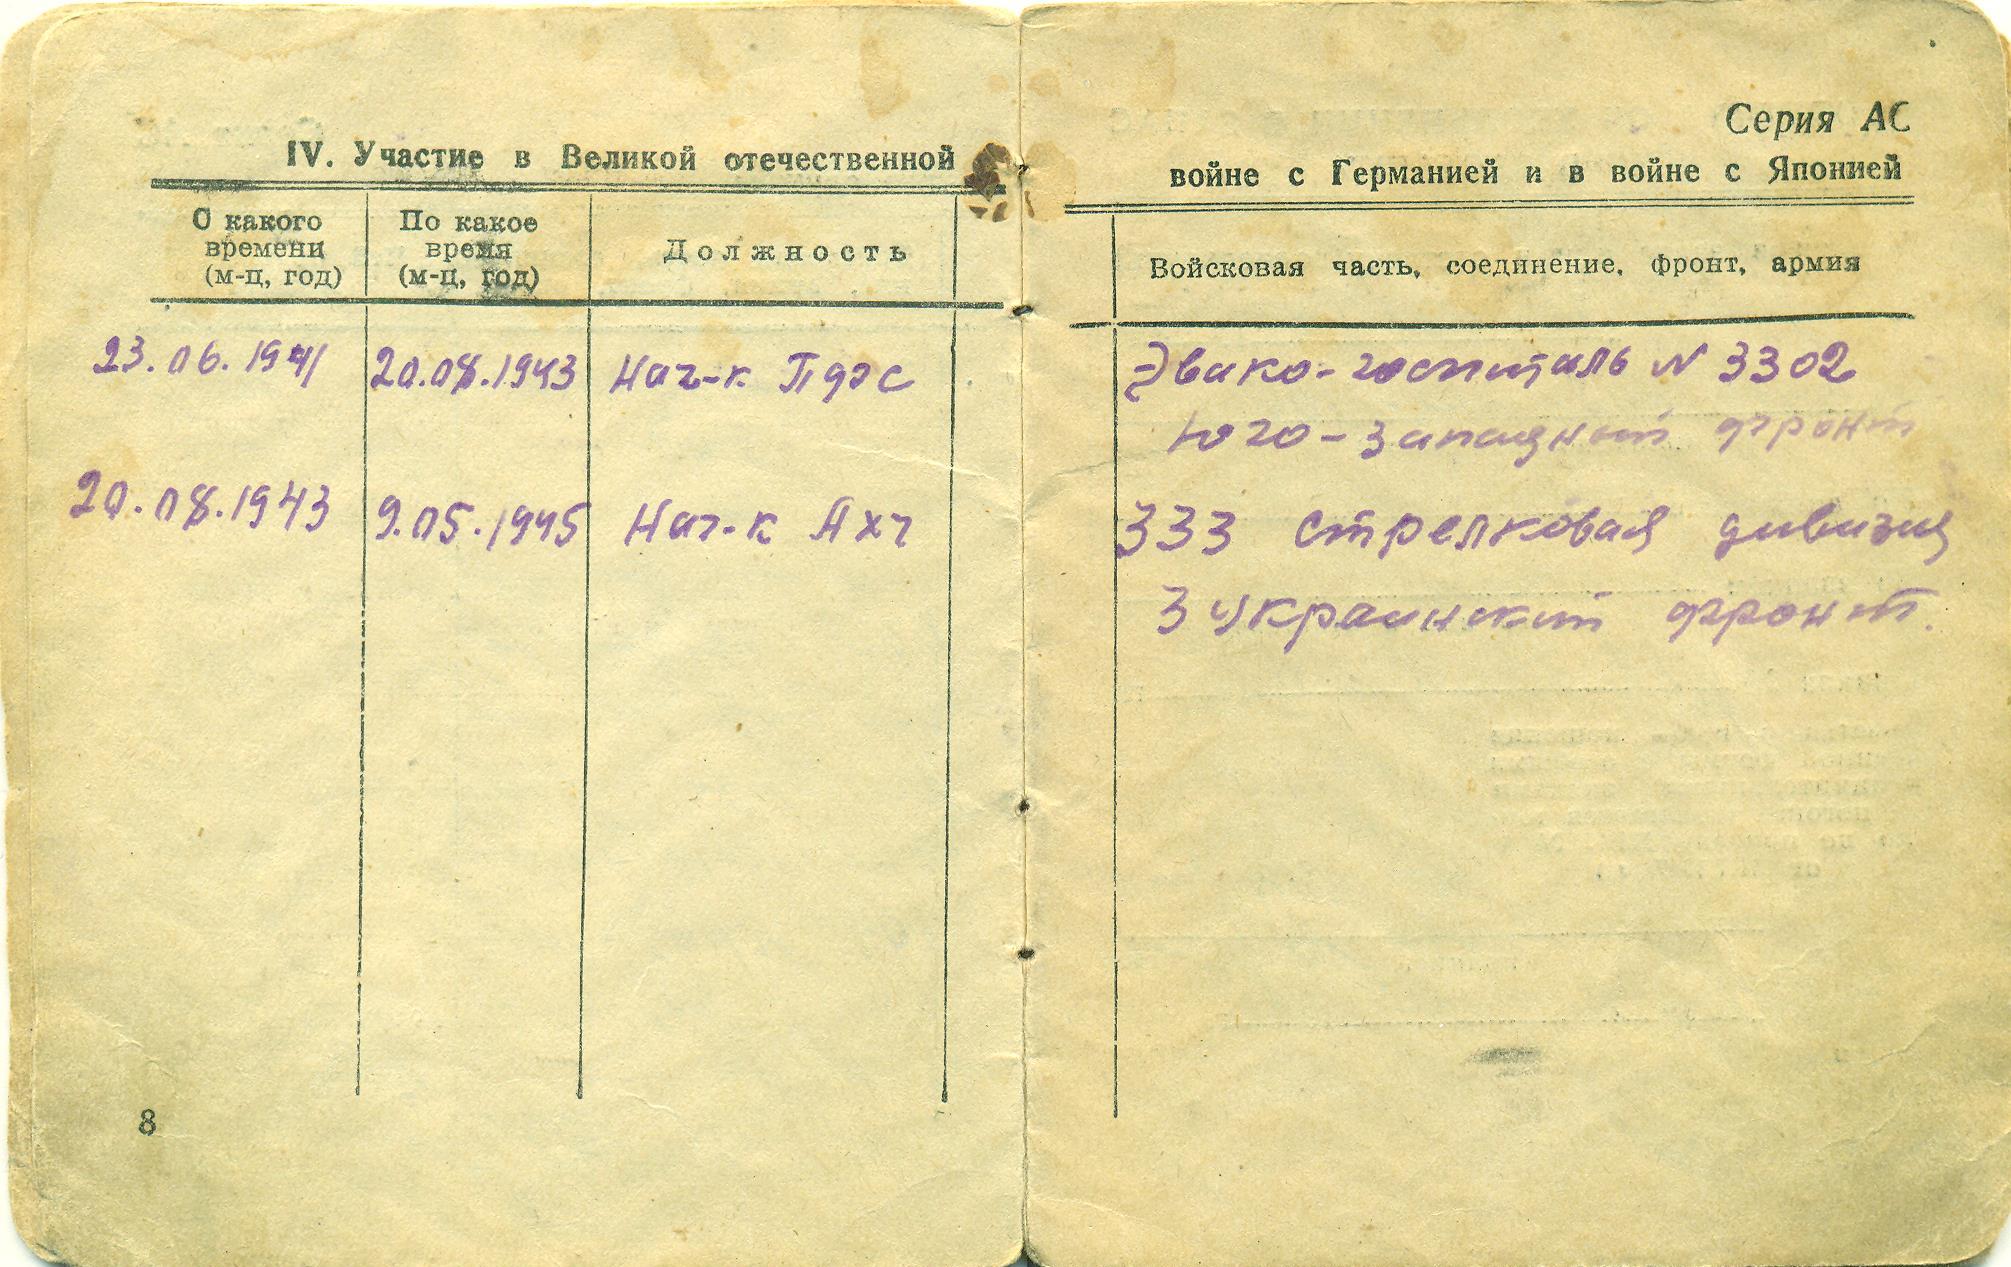 IV. Участие в Великой отечественной
С какого времени (м-ц, год)
По какое время (м-ц, год)
Должность
23.06.1941 20.08.1943 Нач-к Пфс
20.08.1943 9.05.1945 Нач-к Ахч
8
Серия АС
войне с Германией и в войне с Японией
Войсковая часть, соединение, фронт, армия
Эвако-госпиталь N 3302
Юго-Западный фронт
333 стрелковая дивизия
3 Украинский фронт.